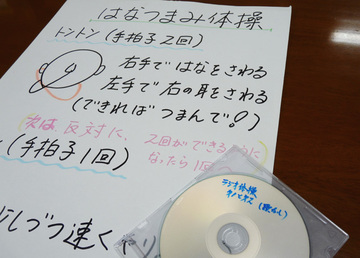 はなつまみ体操
トントン(手拍子2回)
右手ではなをさわる
左手で右の耳をさわる
(できればつまんで!)
次は反対に、
2回ができるように
なったら1回
(手拍子1回)
しづつ速く
ラジオ体操